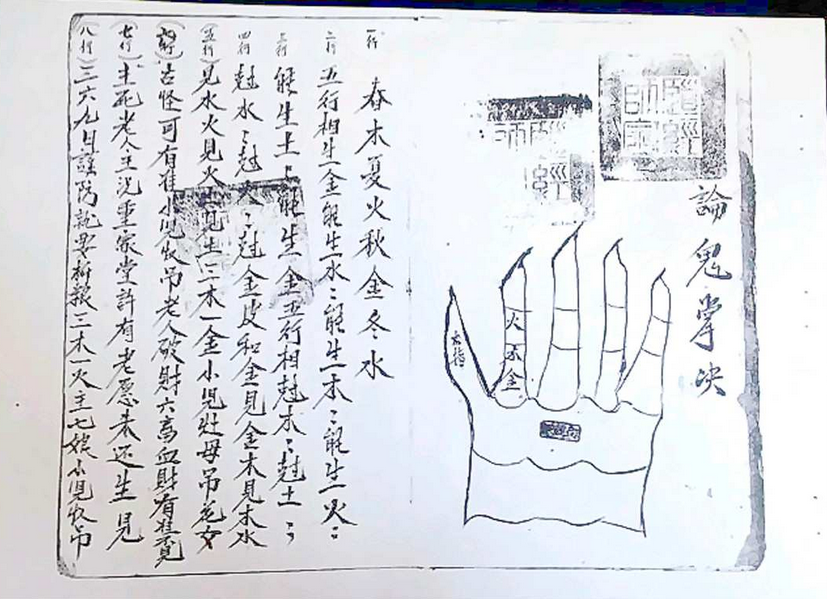 論鬼掌决
道經師寳
道經師
大指
火
木
金
一行 春木夏火秋金冬水
二行 五行相生金能生水〻能生木〻能生火〻
三行 能生土〻能生金五行相尅木〻尅土〻
四行 尅水〻尅火〻尅金皮和金見金木見木水
五行 見水火見火土見土二木一金小児壯母吊花女
古怪可有准小児收吊老人破財六畜血財有
七行 主死老人主沉重家堂許有老愿未还生見
八行 三六九日謹防 三木一火主七娘小児收吊